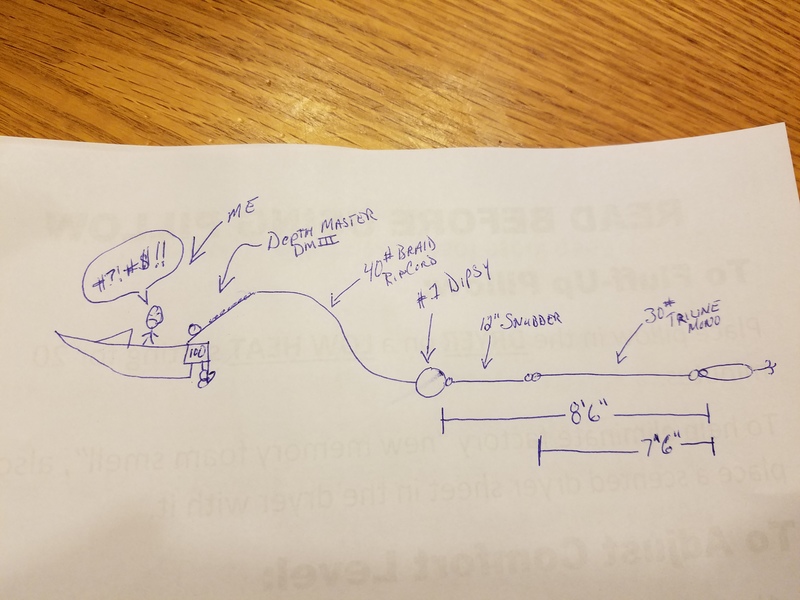 ME
DEPTH MASTER
DM III
#?!#$!!
40# BRAID
RIPCORD
#1 DIPSY
12" SNUBBER
30#
TRILINE
MONO
100
8'6"
7'6"
READ BEFORE
To Fluff-Up
Place pillow in the DRYER on a LOW HEAT
To help eliminate factory "new memory foam smell", also
place a scented dryer sheet in the dryer with it.
To Adjust Comfort Level: